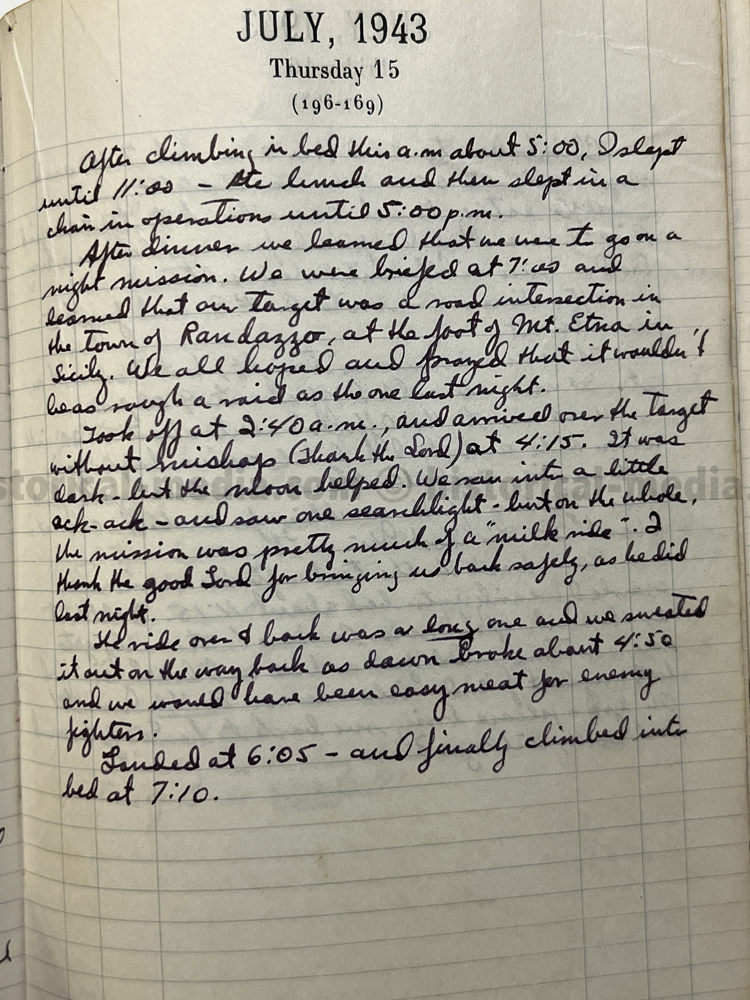 JULY, 1943
Thursday 15
(196-169)
After climbing in bed this a.m about 5:00, I slept
until 11:00 – Ate lunch and then slept in a
chair in operations until 5:00 p.m.
After dinner we learned that we were to go on a
night mission. We were briefed at 7:00 and
learned that our target was a road intersection in
the town of Randazzo, at the foot of Mt. Etna in
Sicily. We all hoped and prayed that it wouldn't
be as rough a raid as the one last night.
Took off at 2:40 a.m., and arrived over the target
without mishap (Thank the Lord) at 4:15. It was
dark - but the moon helped. We ran into a little
ack-ack - and saw one searchlight - but on the whole,
the mission was pretty much of a "milk ride". I
thank the good Lord for bringing us back safely, as he did
last night.
The ride over & back was a long one and we sweated
it out on the way back as dawn broke about 4:50
and we would have been easy meat for enemy
fighters.
Landed at 6:05 – and finally climbed into
bed at 7:10.